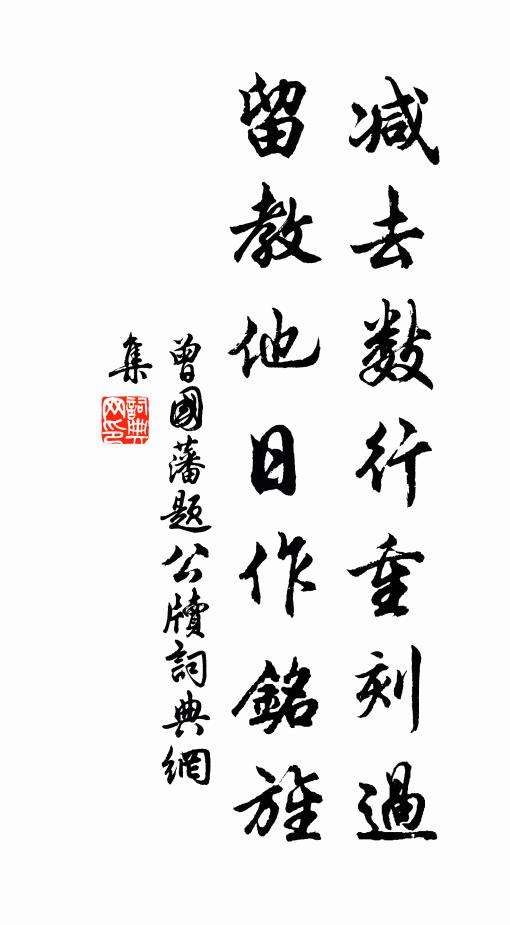 減去數行重刻過
留教他日作銘旌
曾國藩題公牘詞典網
集
詞典網印